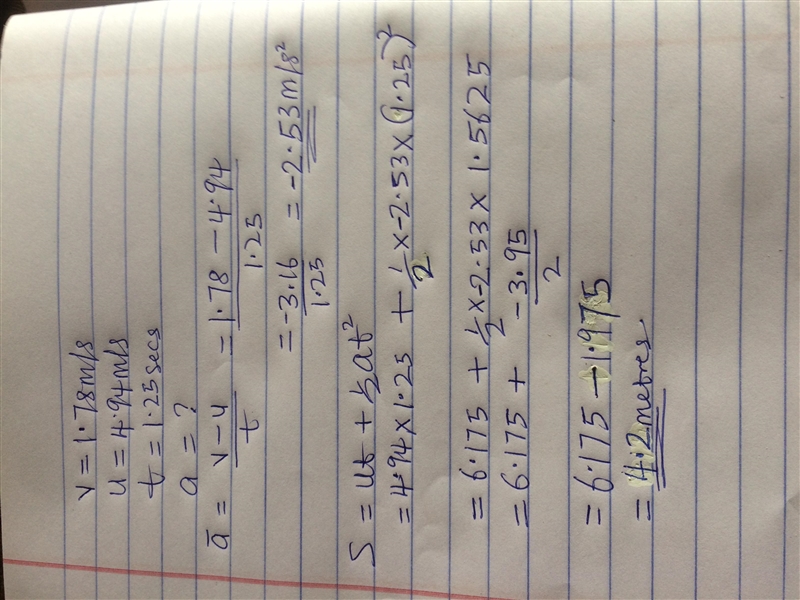 v = 1.78m/s
u = 4.94m/s
t = 1.25secs
a = ?
ā = v - u / t = 1.78 - 4.94 / 1.25
= -3.16 / 1.25 = -2.53m/s²
S = ut + ½at²
= 4.94 × 1.25 + ½ × -2.53 × (1.25)²
= 6.175 + ½ × -2.53 × 1.5625
= 6.175 + -3.95 / 2
= 6.175 - 1.975
= 4.2 metres